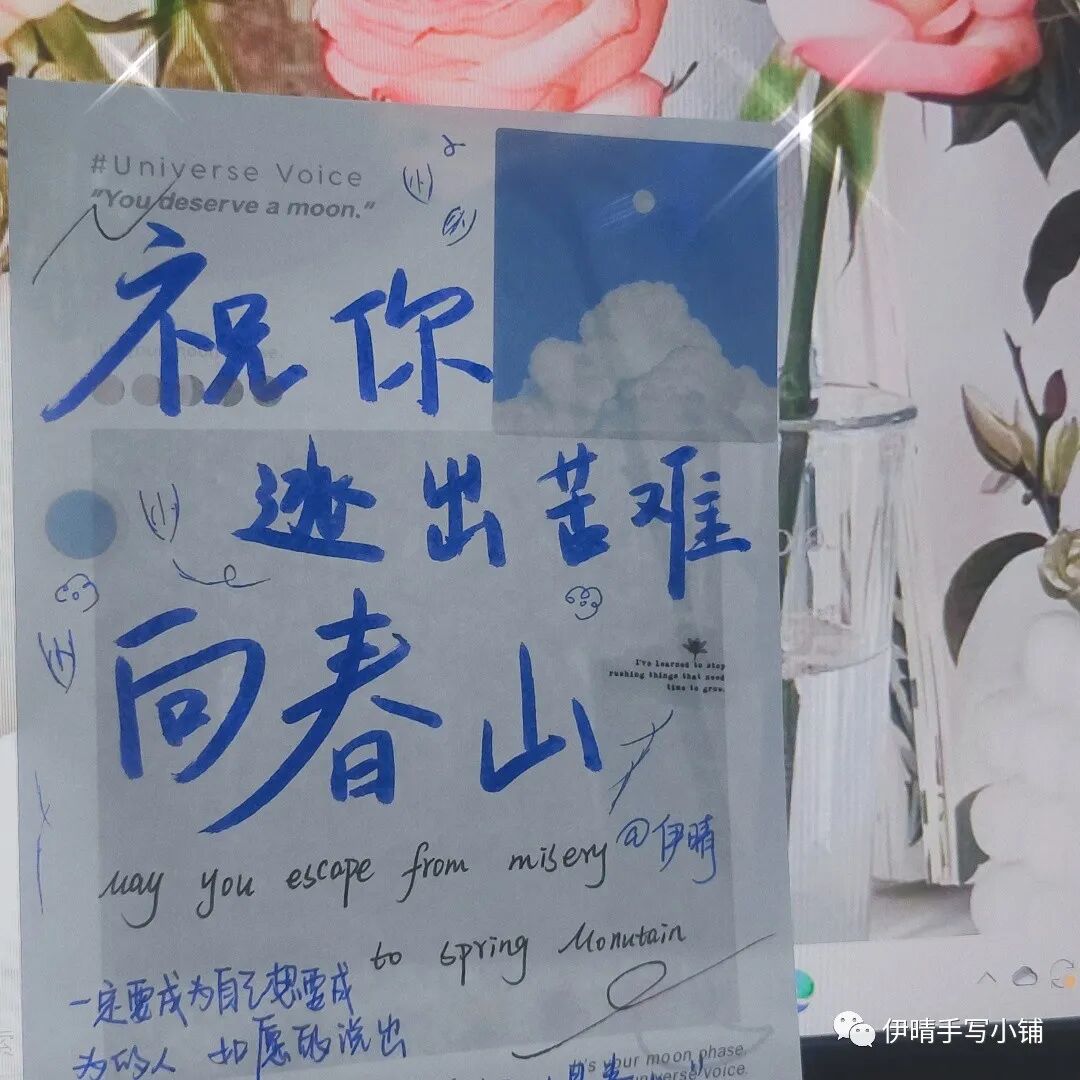 #Universe Voice
"You deserve a moon."
祝你
逃出苦难
I've learned to stop
rushing things that need
time to grow.
向春山
@伊晴
May you escape from misery
to Spring Monutain
一定要成为自己想要成
为的人 如愿的说出
It's your moon phase.
universe voice.
伊晴手写小铺